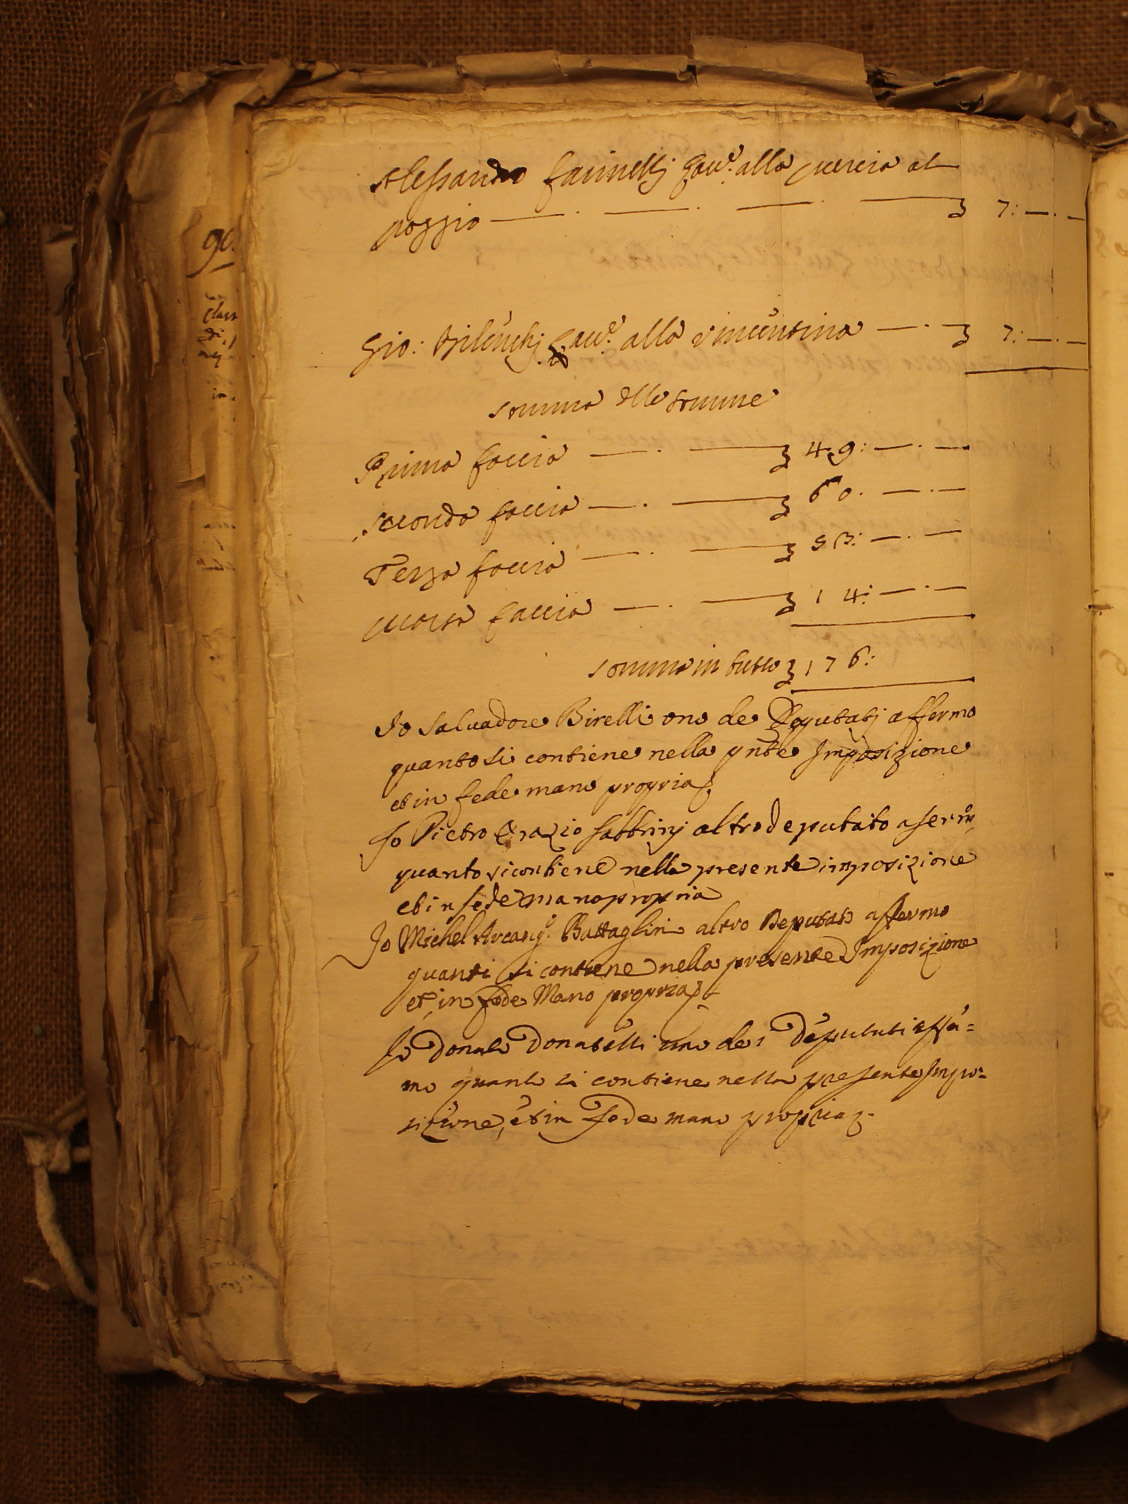 Alessandro farinellj Lauᵉ. alla Quercia al
poggio — . — . — . — ʒ 7: — . —
Gio: Bilenchj Lauᵉ. alla vincentina — . — ʒ 7: — . —
somma delle somme
Prima faccia — . — ʒ 49: — . —
seconda faccia — . — ʒ 60. — . —
Terza faccia — . — ʒ 53: — . —
quarta faccia — . — ʒ 14: — . —
somma in tutto ʒ 176:
Io Saluadore Birelli uno de Deputatj affermo
quanto si contiene nella pnte Imposizione
et in fede mano propria
Io Pietro Orazio fabbrinj altro deputato aferm
quanto si contiene nella presente imposizione
et in fede mano propria
Io Michel Arcang. Battaglini altro Deputato affermo
quanti si contiene nella presente Imposizione
et in fede Mano propria
Io Donato Donatelli uno dei Deputati affer=
mo quanto si contiene nella presente Impo=
sizione, et in fede mano propria
90.